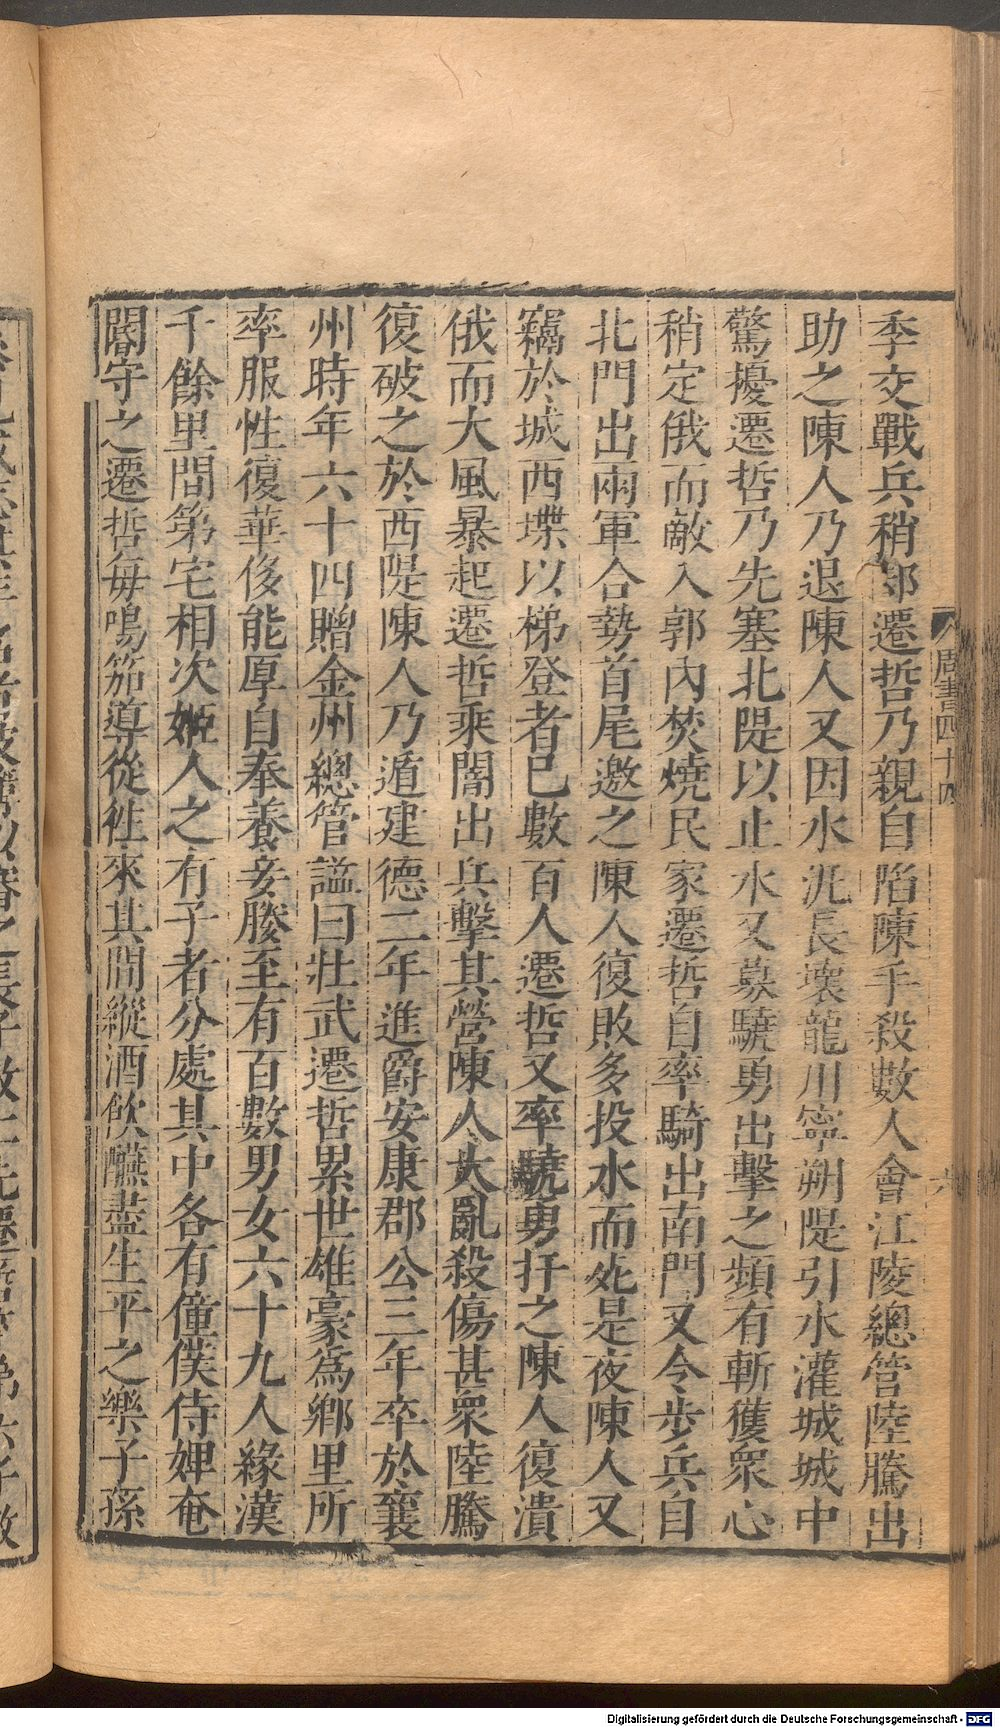 季交戰兵稍郤遷哲乃親自陷陳手殺數人會江陵總管陸騰出
助之陳人乃退陳人又因水汎長壞龍川寧朔隄引水灌城城中
驚擾遷哲乃先塞北隄以止水又募驍勇出擊之頻有斬獲衆心
稍定俄而敵入郭內焚燒民家遷哲自率騎出南門又令步兵自
北門出兩軍合勢首尾邀之陳人復敗多投水而死是夜陳人又
竊於城西堞以梯登者已數百人遷哲又率驍勇扞之陳人復潰
俄而大風暴起遷哲乘闇出兵擊其營陳人大亂殺傷甚衆陸騰
復破之於西隄陳人乃遁建德二年進爵安康郡公三年卒於襄
州時年六十四贈金州總管謚曰壯武遷哲累世雄豪爲鄉里所
率服性復華侈能厚自奉養妾媵至有百數男女六十九人緣漢
千餘里間第宅相次姬人之有子者分處其中各有僮僕侍婢奄
閽守之遷哲每鳴笳導從往來其間縱酒飮醼盡生平之樂子孫
周書四十四
六
Digitalisierung gefördert durch die Deutsche Forschungsgemeinschaft - DFG